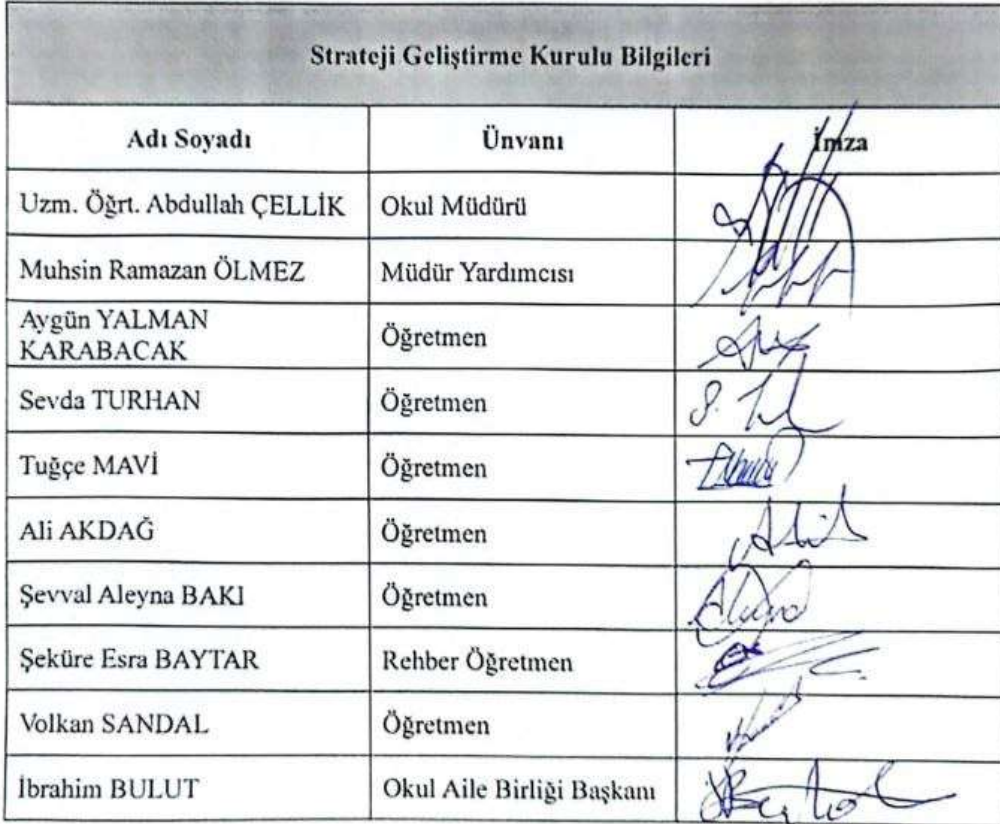 Strateji Geliştirme Kurulu Bilgileri
Adı Soyadı Ünvanı İmza
Uzm. Öğrt. Abdullah ÇELLİK Okul Müdürü
Muhsin Ramazan ÖLMEZ Müdür Yardımcısı
Aygün YALMAN
KARABACAK Öğretmen
Sevda TURHAN Öğretmen
Tuğçe MAVİ Öğretmen
Ali AKDAĞ Öğretmen
Şevval Aleyna BAKI Öğretmen
Şeküre Esra BAYTAR Rehber Öğretmen
Volkan SANDAL Öğretmen
İbrahim BULUT Okul Aile Birliği Başkanı